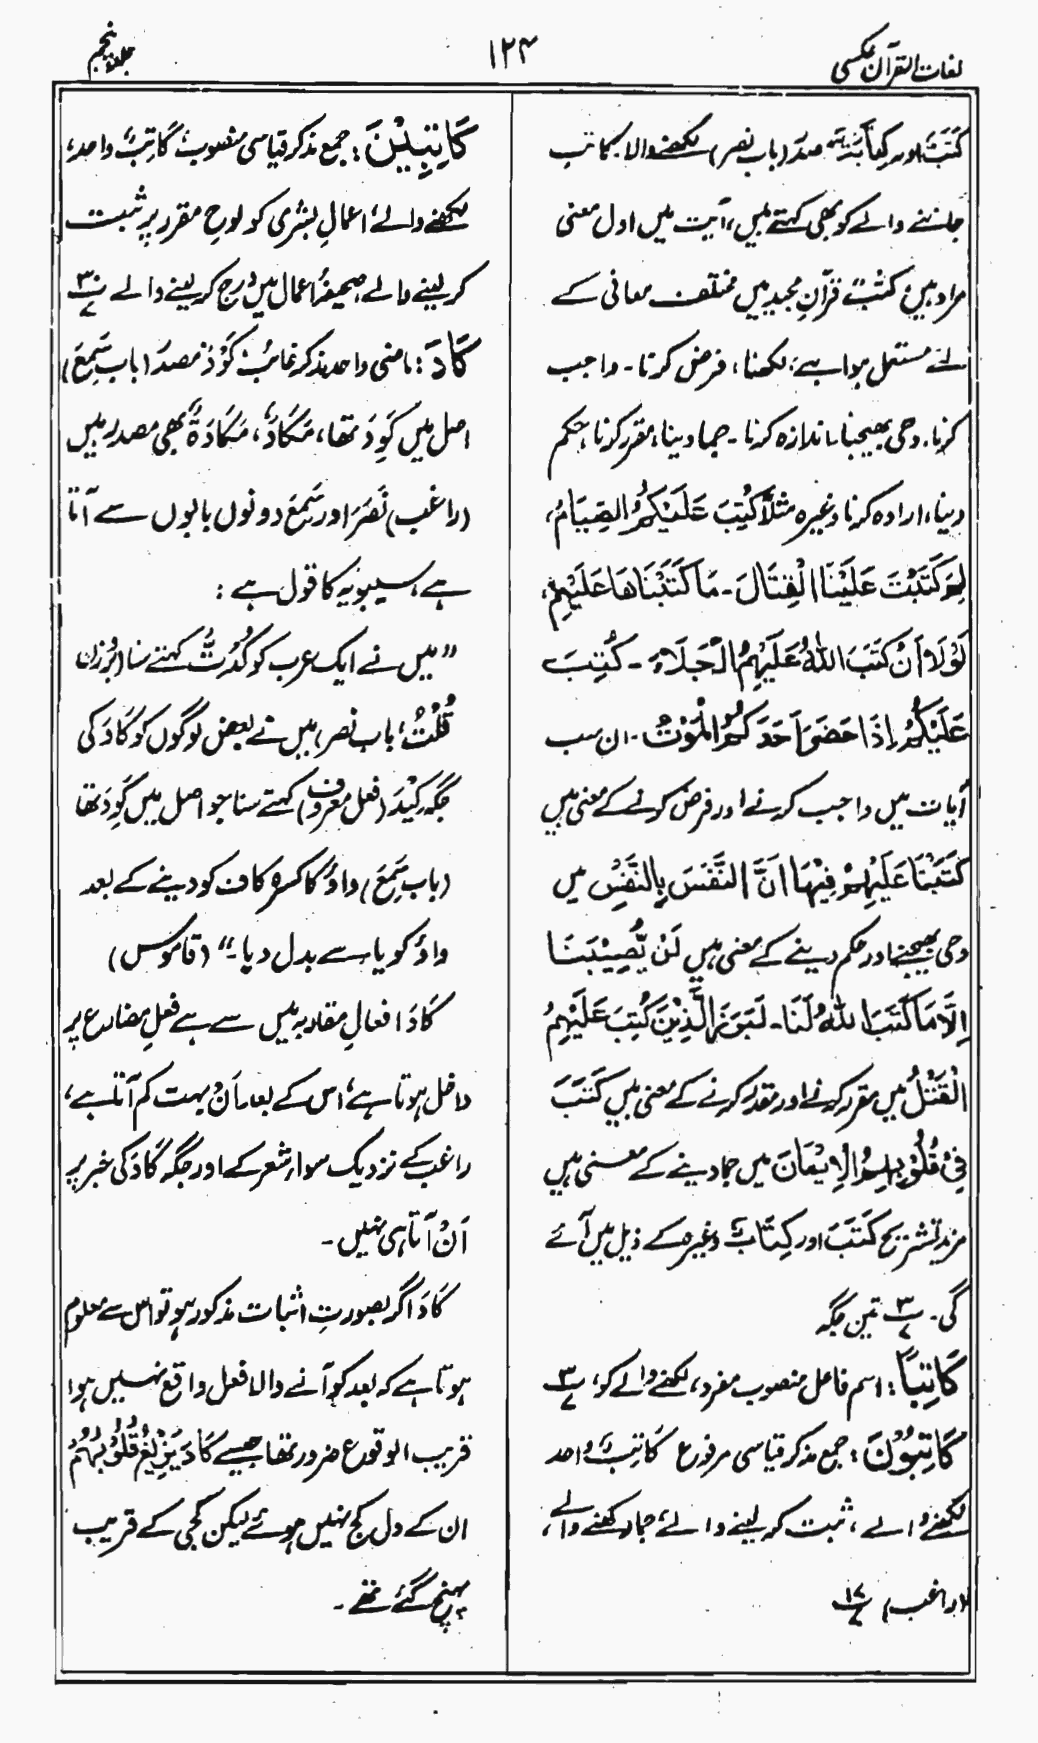 لغات القرآن عکسی
۱۲۴
جلد پنجم
كَتَبَ اور كِتَابَةً مصدر (باب نصر) لکھنے والا، کاتب
جاننے والے کو بھی کہتے ہیں، آیت میں اول معنی
مراد ہیں، كَتَبَ قرآنِ مجید میں مختلف معانی کے
لئے مستعمل ہوا ہے، لکھنا، فرض کرنا۔ واجب
کرنا۔ وحی بھیجنا۔ اندازہ کرنا۔ جما دینا، مقرر کرنا، حکم
دینا، ارادہ کرنا وغیرہ مثلاً كُتِبَ عَلَيْكُمُ الصِّيَامُ،
لِمَ كَتَبْتَ عَلَيْنَا الْقِتَالَ۔ مَا كَتَبْنَاهَا عَلَيْهِمْ،
لَوْلَا اَنْ كَتَبَ اللهُ عَلَيْهِمُ الْجَلَاءَ۔ كُتِبَ
عَلَيْكُمْ اِذَا حَضَرَ اَحَدَكُمُ الْمَوْتُ۔ ان سب
آیات میں واجب کرنے اور فرض کرنے کے معنی ہیں
كَتَبْنَا عَلَيْهِمْ فِيْهَا اَنَّ النَّفْسَ بِالنَّفْسِ میں
وحی بھیجنے اور حکم دینے کے معنی ہیں لَنْ يُّصِيْبَنَا
اِلَّا مَا كَتَبَ اللهُ لَنَا۔ لَبَرَزَ الَّذِيْنَ كُتِبَ عَلَيْهِمُ
الْقَتْلُ میں مقرر کرنے اور مقدر کرنے کے معنی ہیں كَتَبَ
فِيْ قُلُوْبِهِمُ الْاِيْمَانَ میں جما دینے کے معنی ہیں
مزید تشریح كَتَبَ اور كِتَابٌ وغیرہ کے ذیل میں آئے
گی۔ ۳/۷ تین جگہ
كَاتِبًا: اسم فاعل منصوب مفرد، لکھنے والے کو، ۳/۷
كَاتِبُوْنَ: جمع مذکر قیاسی مرفوع كَاتِبٌ واحد
لکھنے والے، ثبت کر لینے والے، جمار کھنے والے،
(راغب) ۱۷/۷
كَاتِبِيْنَ: جمع مذکر قیاسی منصوب، كَاتِبٌ واحد،
لکھنے والے، اعمالِ بشری کو لوحِ مقرر پر ثبت
کر لینے والے، صحیفۂ اعمال میں درج کر لینے والے ۳۰/۷
كَادَ: ماضی واحد مذکر غائب كَوْدٌ مصدر (باب سَمِعَ)
اصل میں كَوِدَ تھا، مَكَادٌ، مَكَادَةٌ بھی مصدر ہیں
(راغب) نَصَرَ اور سَمِعَ دونوں بابوں سے آتا
ہے، سیبویہ کا قول ہے:
"میں نے ایک عرب کو كُدْتُّ کہتے سنا (بوزن
قُلْتُ، باب نصر) میں نے بعض لوگوں کو كَادَ کی
جگہ كِيْدَ (فعل معروف) کہتے سنا جو اصل میں كَوِدَ تھا
(باب سَمِعَ) واؤ کا کسرہ کاف کو دینے کے بعد
واؤ کو یا سے بدل دیا۔" (قاموس)
كَادَ افعالِ مقاربہ میں سے ہے فعلِ مضارع پر
داخل ہوتا ہے، اس کے بعد اَنْ بہت کم آتا ہے،
راغب کے نزدیک سوائے شعر کے اور جگہ كَادَ کی خبر پر
اَنْ آتا ہی نہیں۔
كَادَ اگر بصورتِ اثبات مذکور ہو تو اس سے معلوم
ہوتا ہے کہ بعد کو آنے والا فعل واقع نہیں ہوا
قریب الوقوع ضرور تھا جیسے كَادَ يَزِيْغُ قُلُوْبُهُمْ
ان کے دل کج نہیں ہوئے لیکن کجی کے قریب
پہنچ گئے تھے۔